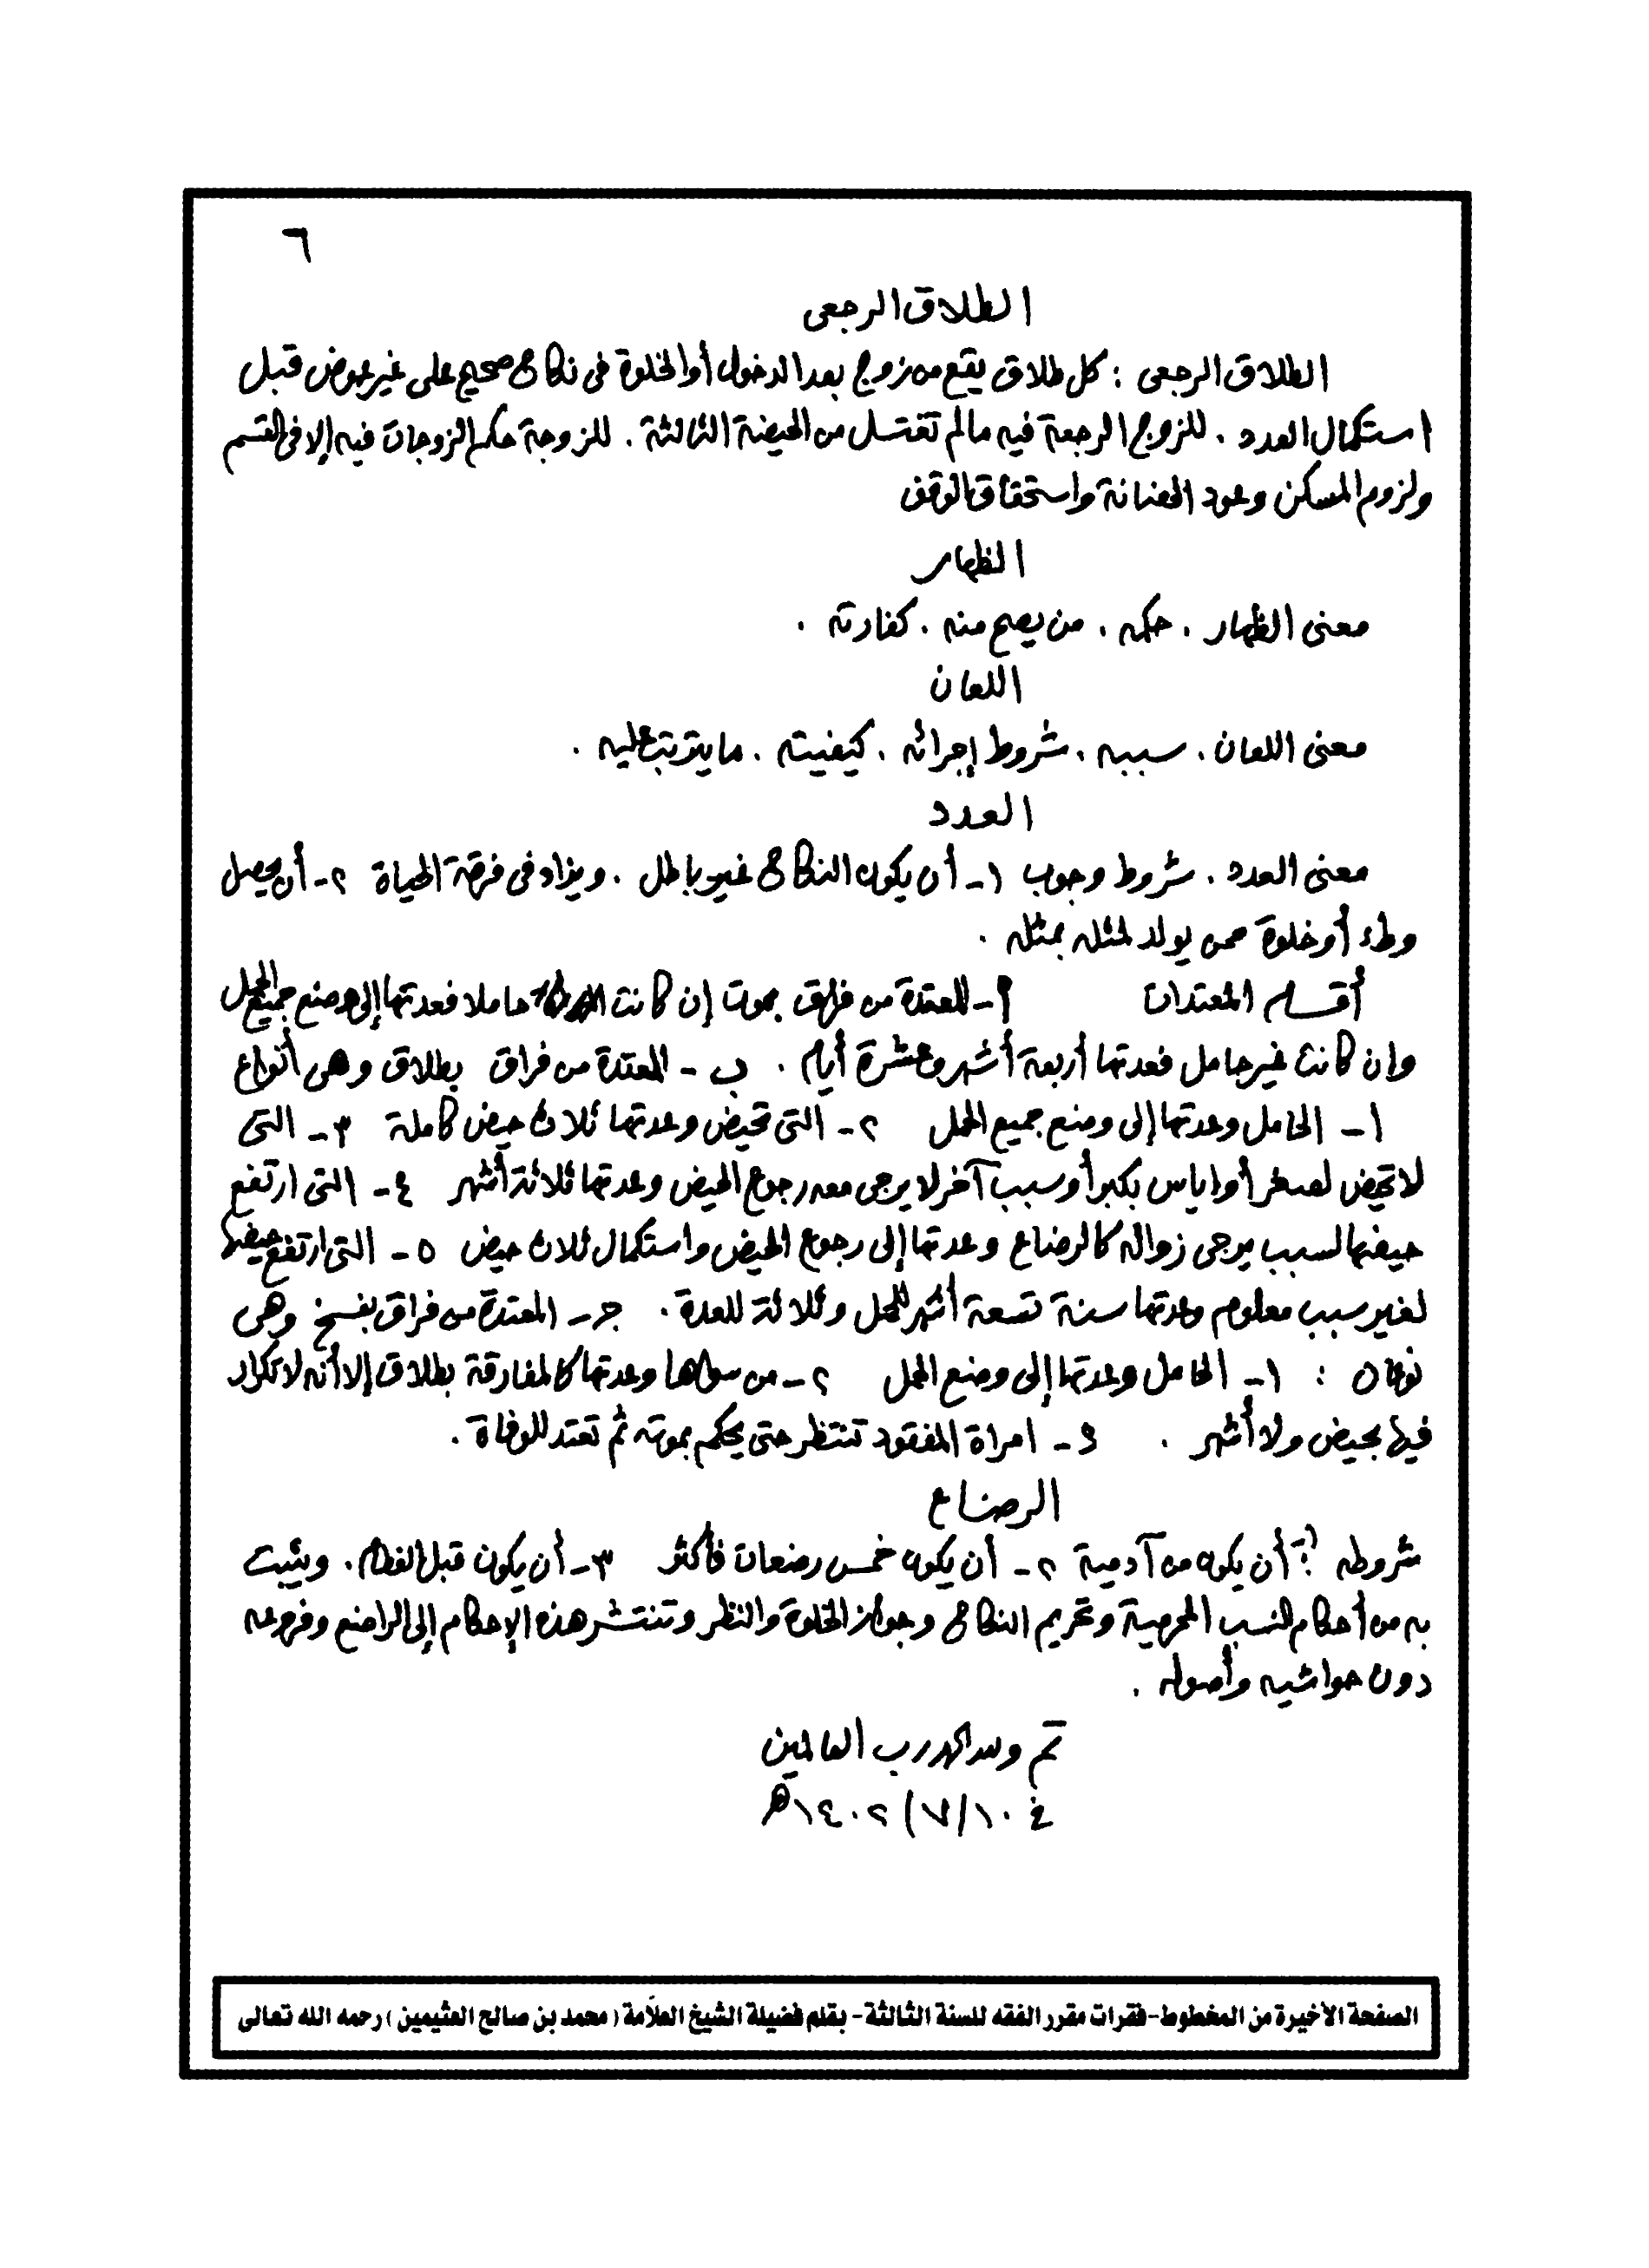 ٦
الطلاق الرجعى
الطلاق الرجعى : كل طلاق يقع من زوج بعد الدخول أو الخلوة فى نكاح صحيح على غير عوض قبل
استكمال العدد . للزوج الرجعة فيه مالم تغتسل من الحيضة الثالثة . للزوجة حكم الزوجات فيه إلا فى القسم
ولزوم المسكن وعود الحضانة واستحقاق الوقف
الظهار
معنى الظهار . حكمه . من يصح منه . كفارته .
اللعان
معنى اللعان . سببه . شروط إجرائه . كيفيته . ما يترتب عليه .
العدد
معنى العدد . شروط وجوب ١- أن يكون النكاح غير باطل . ويزاد فى فرقة الحياة ٢- أن يحصل
وطء أو خلوة ممن يولد لمثله بمثله .
أقسام المعتدات أ- المعتدة من فراق بموت إن كانت حاملا فعدتها إلى وضع جميع الحمل
وإن كانت غير حامل فعدتها أربعة أشهر وعشرة أيام . ب - المعتدة من فراق بطلاق وهى أنواع
١- الحامل وعدتها إلى وضع جميع الحمل ٢- التى تحيض وعدتها ثلاث حيض كاملة ٣- التى
لا تحيض لصغر أو اياس بكبر أو سبب آخر لا يرجى معه رجوع الحيض وعدتها ثلاثة أشهر ٤- التى ارتفع
حيضها لسبب يرجى زواله كالرضاع وعدتها إلى رجوع الحيض واستكمال ثلاث حيض ٥- التى ارتفع حيضها
لغير سبب معلوم وعدتها سنة تسعة أشهر للحمل وثلاثة للعدة . جـ- المعتدة من فراق بفسخ وهى
نوعان : ١- الحامل وعدتها إلى وضع الحمل ٢- من سواها وعدتها كالمفارقة بطلاق إلا أنه لا تكرار
فيها بحيض ولا أشهر . د- امراة المفقود تنتظر حتى يحكم بموته ثم تعتد للوفاة .
الرضاع
شروطه ١- أن يكون من آدمية ٢- أن يكون خمس رضعات فأكثر ٣- أن يكون قبل الفطام . ويثبت
به من أحكام النسب المحرمية وتحريم النكاح وجواز الخلوة والنظر وتنتشر هذه الإحكام إلى الراضع وفروعه
دون حواشيه وأصوله .
تم ولله الحمد رب العالمين
فى ١٠/٧/١٤٠٢هـ
الصفحة الأخيرة من المخطوط-فقرات مقرر الفقه للسنة الثالثة- بقلم فضيلة الشيخ العلاّمة (محمد بن صالح العثيمين) رحمه الله تعالى